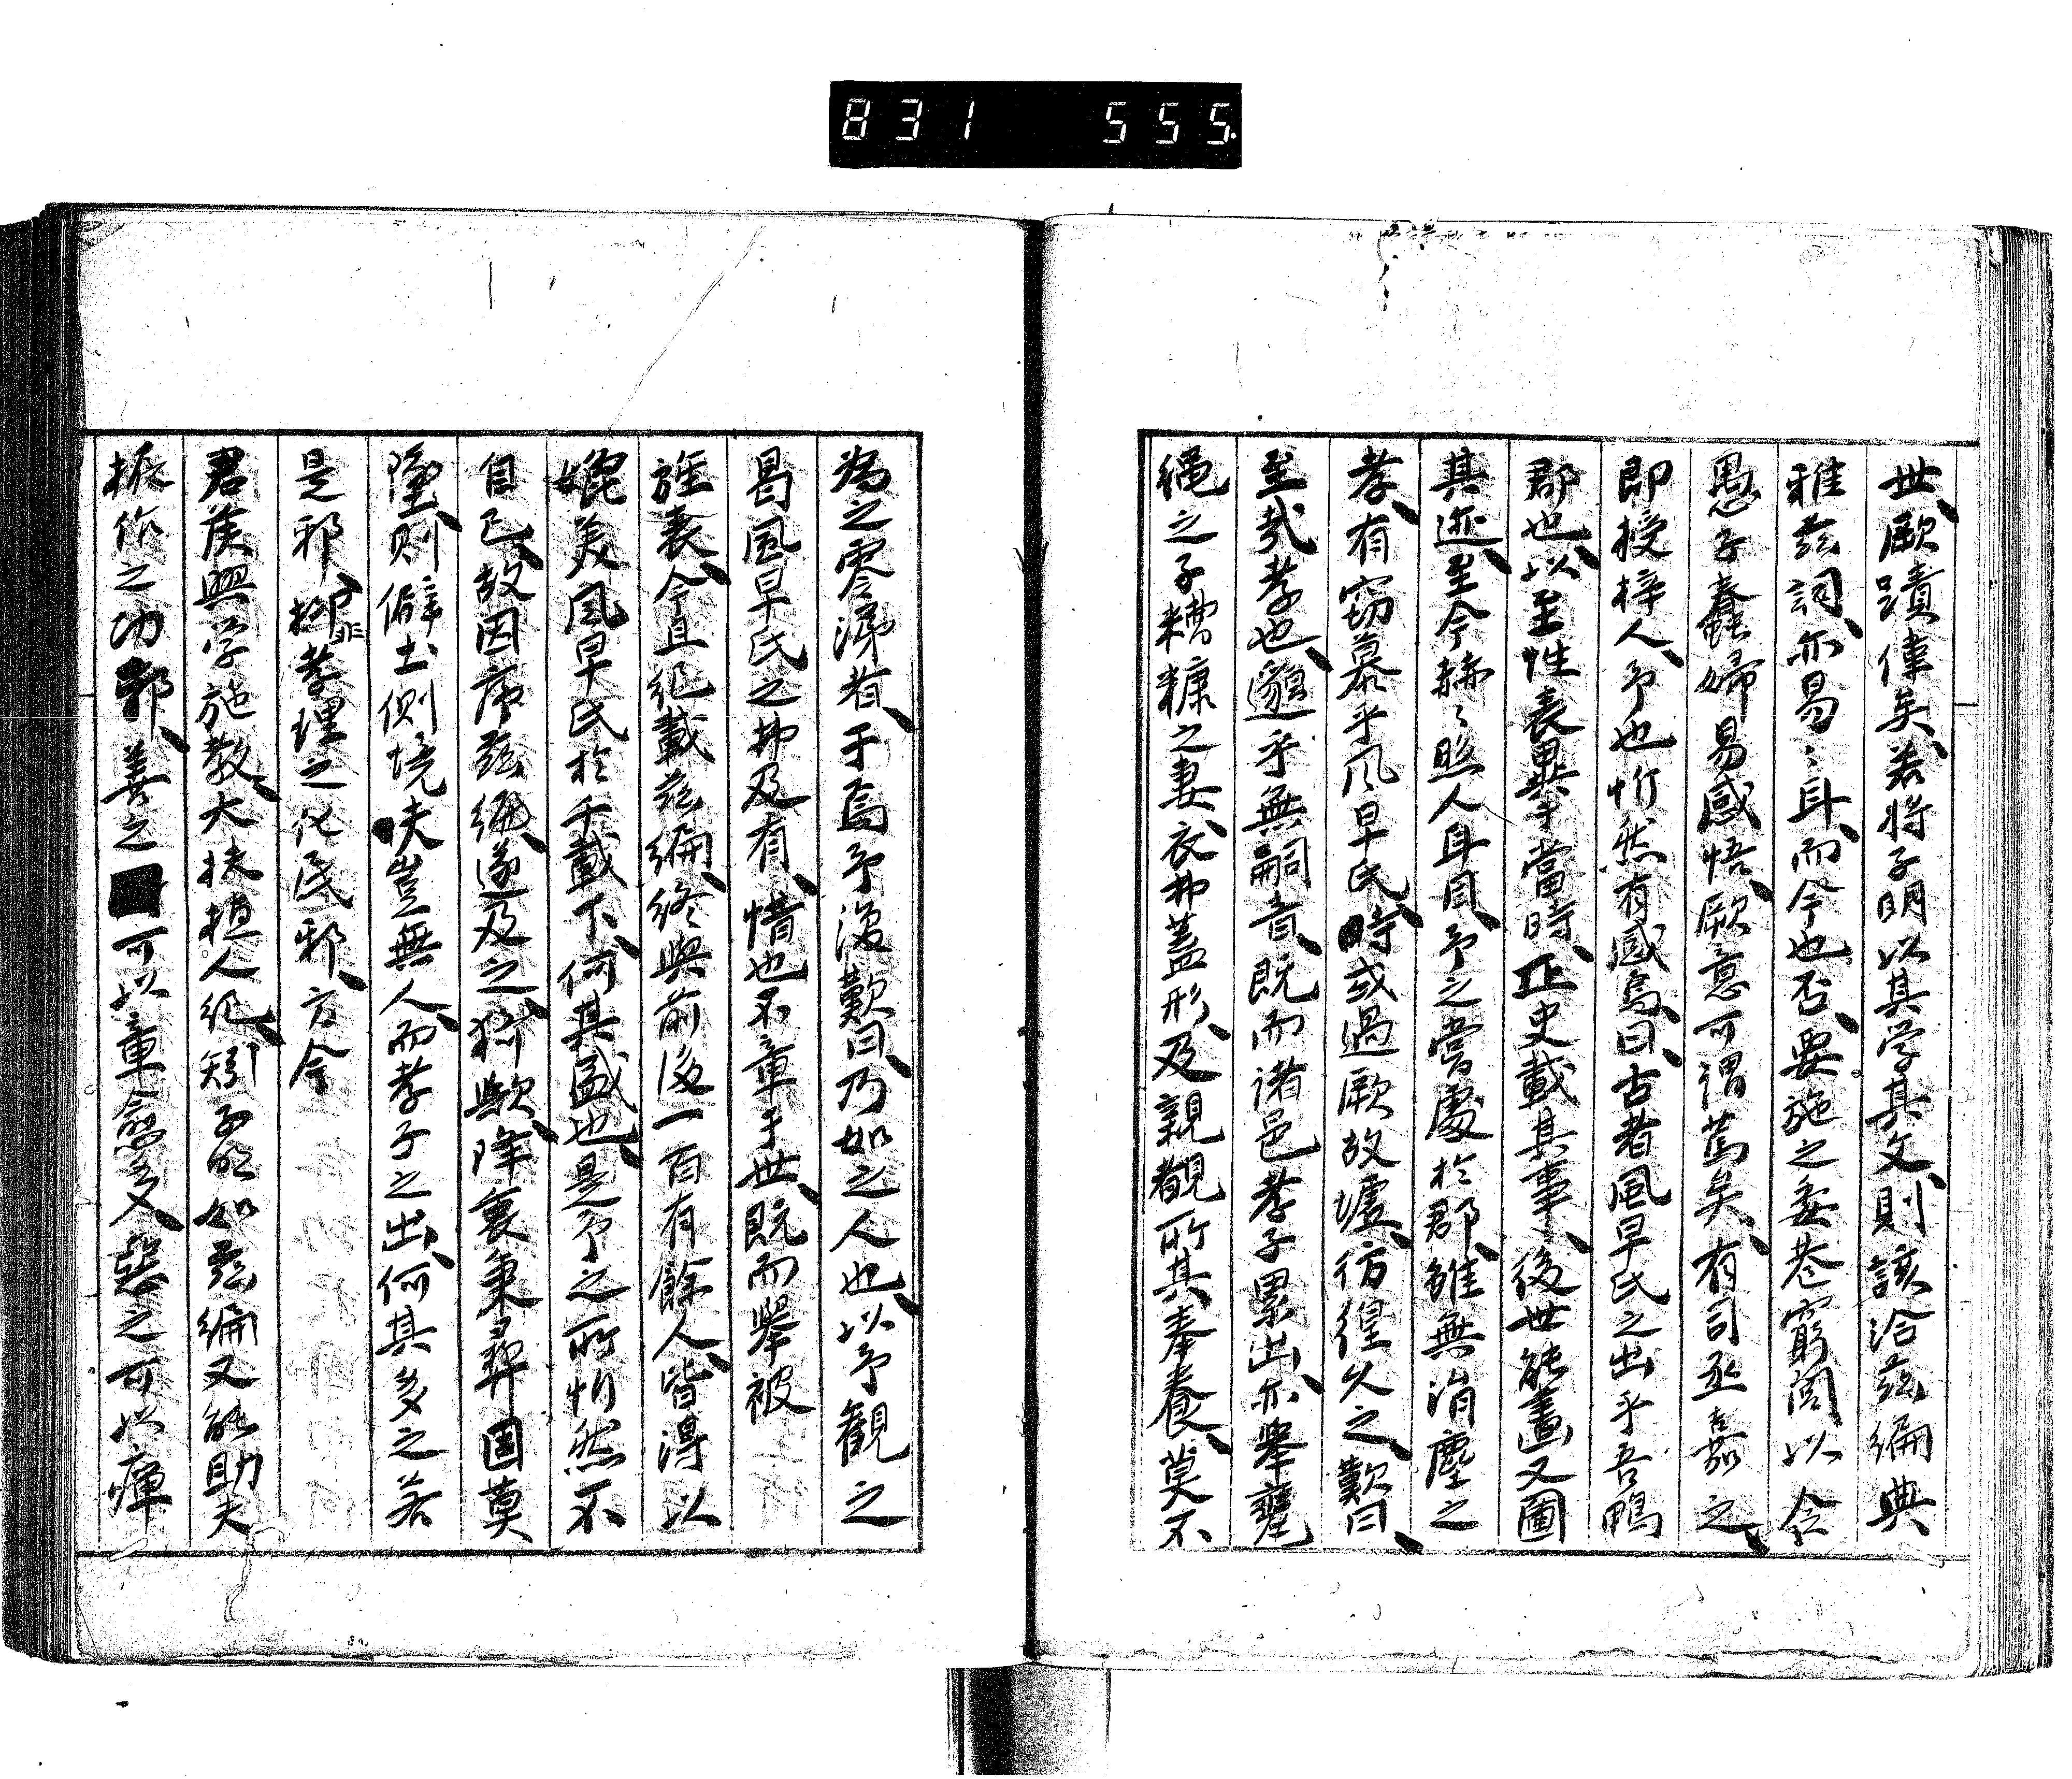 831 555.
世、厥蹟偉矣、若将子明以其学其文、則該洽茲編典
雅茲詞、亦易〻耳、而今也否、要施之委巷窮閻、以令
愚子蠢婦易感悟、厥意可謂篤矣、有司丞嘉之、
即授梓人、予也忻然有感焉、曰、古者風早氏之出乎吾鴨
郡也、以至性表異乎當時、正史載其事、後世能畫又圖
其迹、至今赫〻照人耳目、予之嘗處於郡、雖無涓塵之
孝、有窃慕乎風早氏、時或過厥故墟、彷徨久之、歎曰、
至哉孝也、邈乎無嗣音、既而诸邑孝子累出、亦舉甕
繩之子糟糠之妻、衣弗蓋形、及親覩所其奉養、莫不
為之零涕者、于焉予復歎曰、乃如之人也、以予觀之
曷風早氏之弗及有、惜也不章于世、既而舉被
旌表、今且紀載茲編、終與前後一百有餘人、皆得以
媲美風早氏於千載下、何其盛也、是予之所忻然不
自已、故因序茲編、遂及之、猗歟、降衷秉彝、固莫
墜、則僻土側境、夫豈無人、而孝子之出、何其多之若
是邪、抑非孝理之化民邪、方今
君侯興学施教、大扶植人紀、矧子明如茲編又能助夫
振作之功邪、善之可以章愈多、惡之可以癉